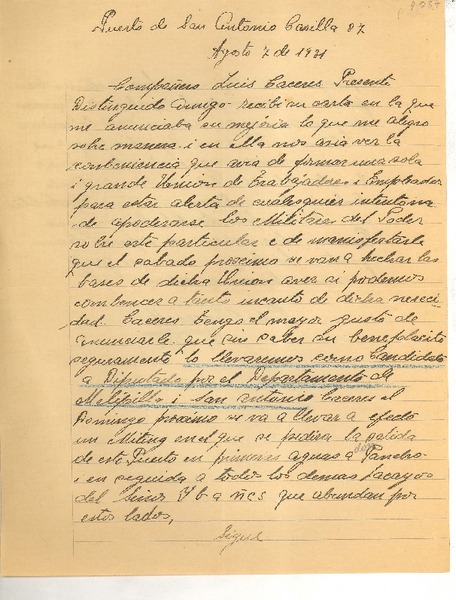 Puerto de San Antonio Casilla 87
Agosto 7 de 1931
Compañero Luis Caceres Presente
Distinguido Amigo recibi su carta en la que
me anunciaba su mejoria lo que me alegro
sobre manera i en ella nos asia ver la
conbeniencia que avra de formar una sola
i grande Union de Trabajadores i Empleados
para estar alerta de cualesquier intentona
de apoderarse los Militares del Poder
sobre este particular e de manifestarle
que el sabado procsimo se van a hechar las
bases de dicha Union aver si podemos
conbencer a tanto incauto de dicha neseci
dad. Caceres tengo el mayor gusto de
anunciarle que sin saber su beneplasito
seguramente lo llevaremos como Candidato
a Diputado por el Departamento de
Melipilla i San Antonio Caceres el
Domingo procsimo se va a llevar a efecto
un Miting en el que se pedira la salida
de este Puerto en primeras aguas a
i en seguida a todos los demas lacayos
del Señor Ybañes que abundan por
estos lados,
Sigue